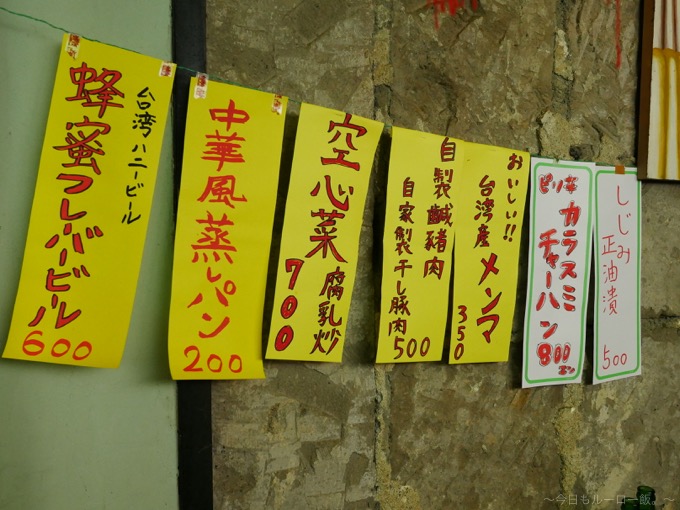 台湾ハニービール
蜂蜜フレーバービール
600
中華風蒸しパン
200
空心菜
腐乳炒
700
自製鹹豬肉
自家製干し豚肉
500
おいしい!!
台湾産
メンマ
350
ピリ辛
カラスミ
チャーハン
800エン
しじみ
正油漬
500
～今日もルーロー飯。～